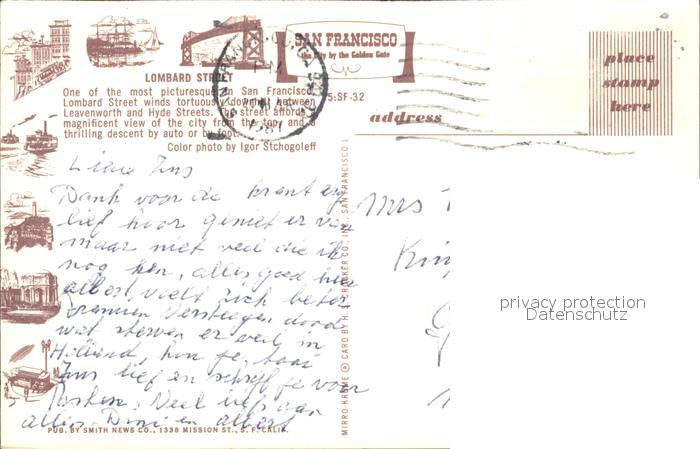 SAN FRANCISCO
the City by the Golden Gate
LOMBARD STREET
One of the most picturesque in San Francisco,
Lombard Street winds tortuously down between
Leavenworth and Hyde Streets. The street affords
magnificent view of the city from the top, and a
thrilling descent by auto or by foot.
Color photo by Igor Stchogoleff
5:SF-32
place
stamp
here
address
Dank voor de krant erg
lief hoor geniet er van
maar niet veel die ik
nog ken, alles goed hier
albert voelt zich beter
dood
wat sterven er veel in
Holland, hou je taai
lief en schrijf je voor
Veel liefs aan
allen. en albert
Mrs
PUB. BY SMITH NEWS CO., 1336 MISSION ST., S. F. CALIF.
MIRRO-KROME ® CARD BY H. S. CROCKER CO., INC., SAN FRANCISCO 1
privacy protection
Datenschutz